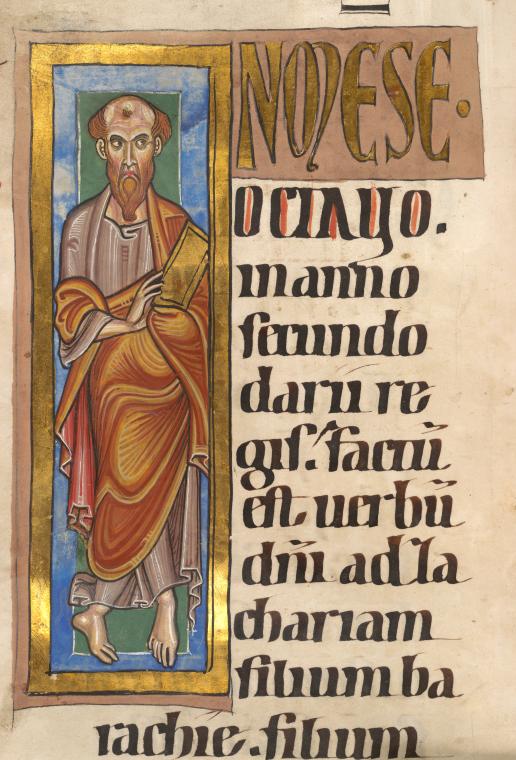 NMESE·
OCTAVO.
in anno
secundo
darii re
gis. factū
est uerbū
dn̄i ad za
chariam
filium ba
rachie. filium